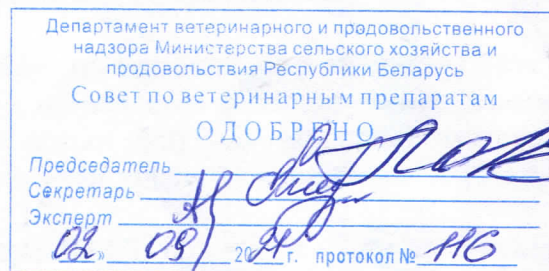 Департамент ветеринарного и продовольственного
надзора Министерства сельского хозяйства и
продовольствия Республики Беларусь
Совет по ветеринарным препаратам
ОДОБРЕНО
Председатель
Секретарь
Эксперт
02 » 09 2021 г. протокол № 116